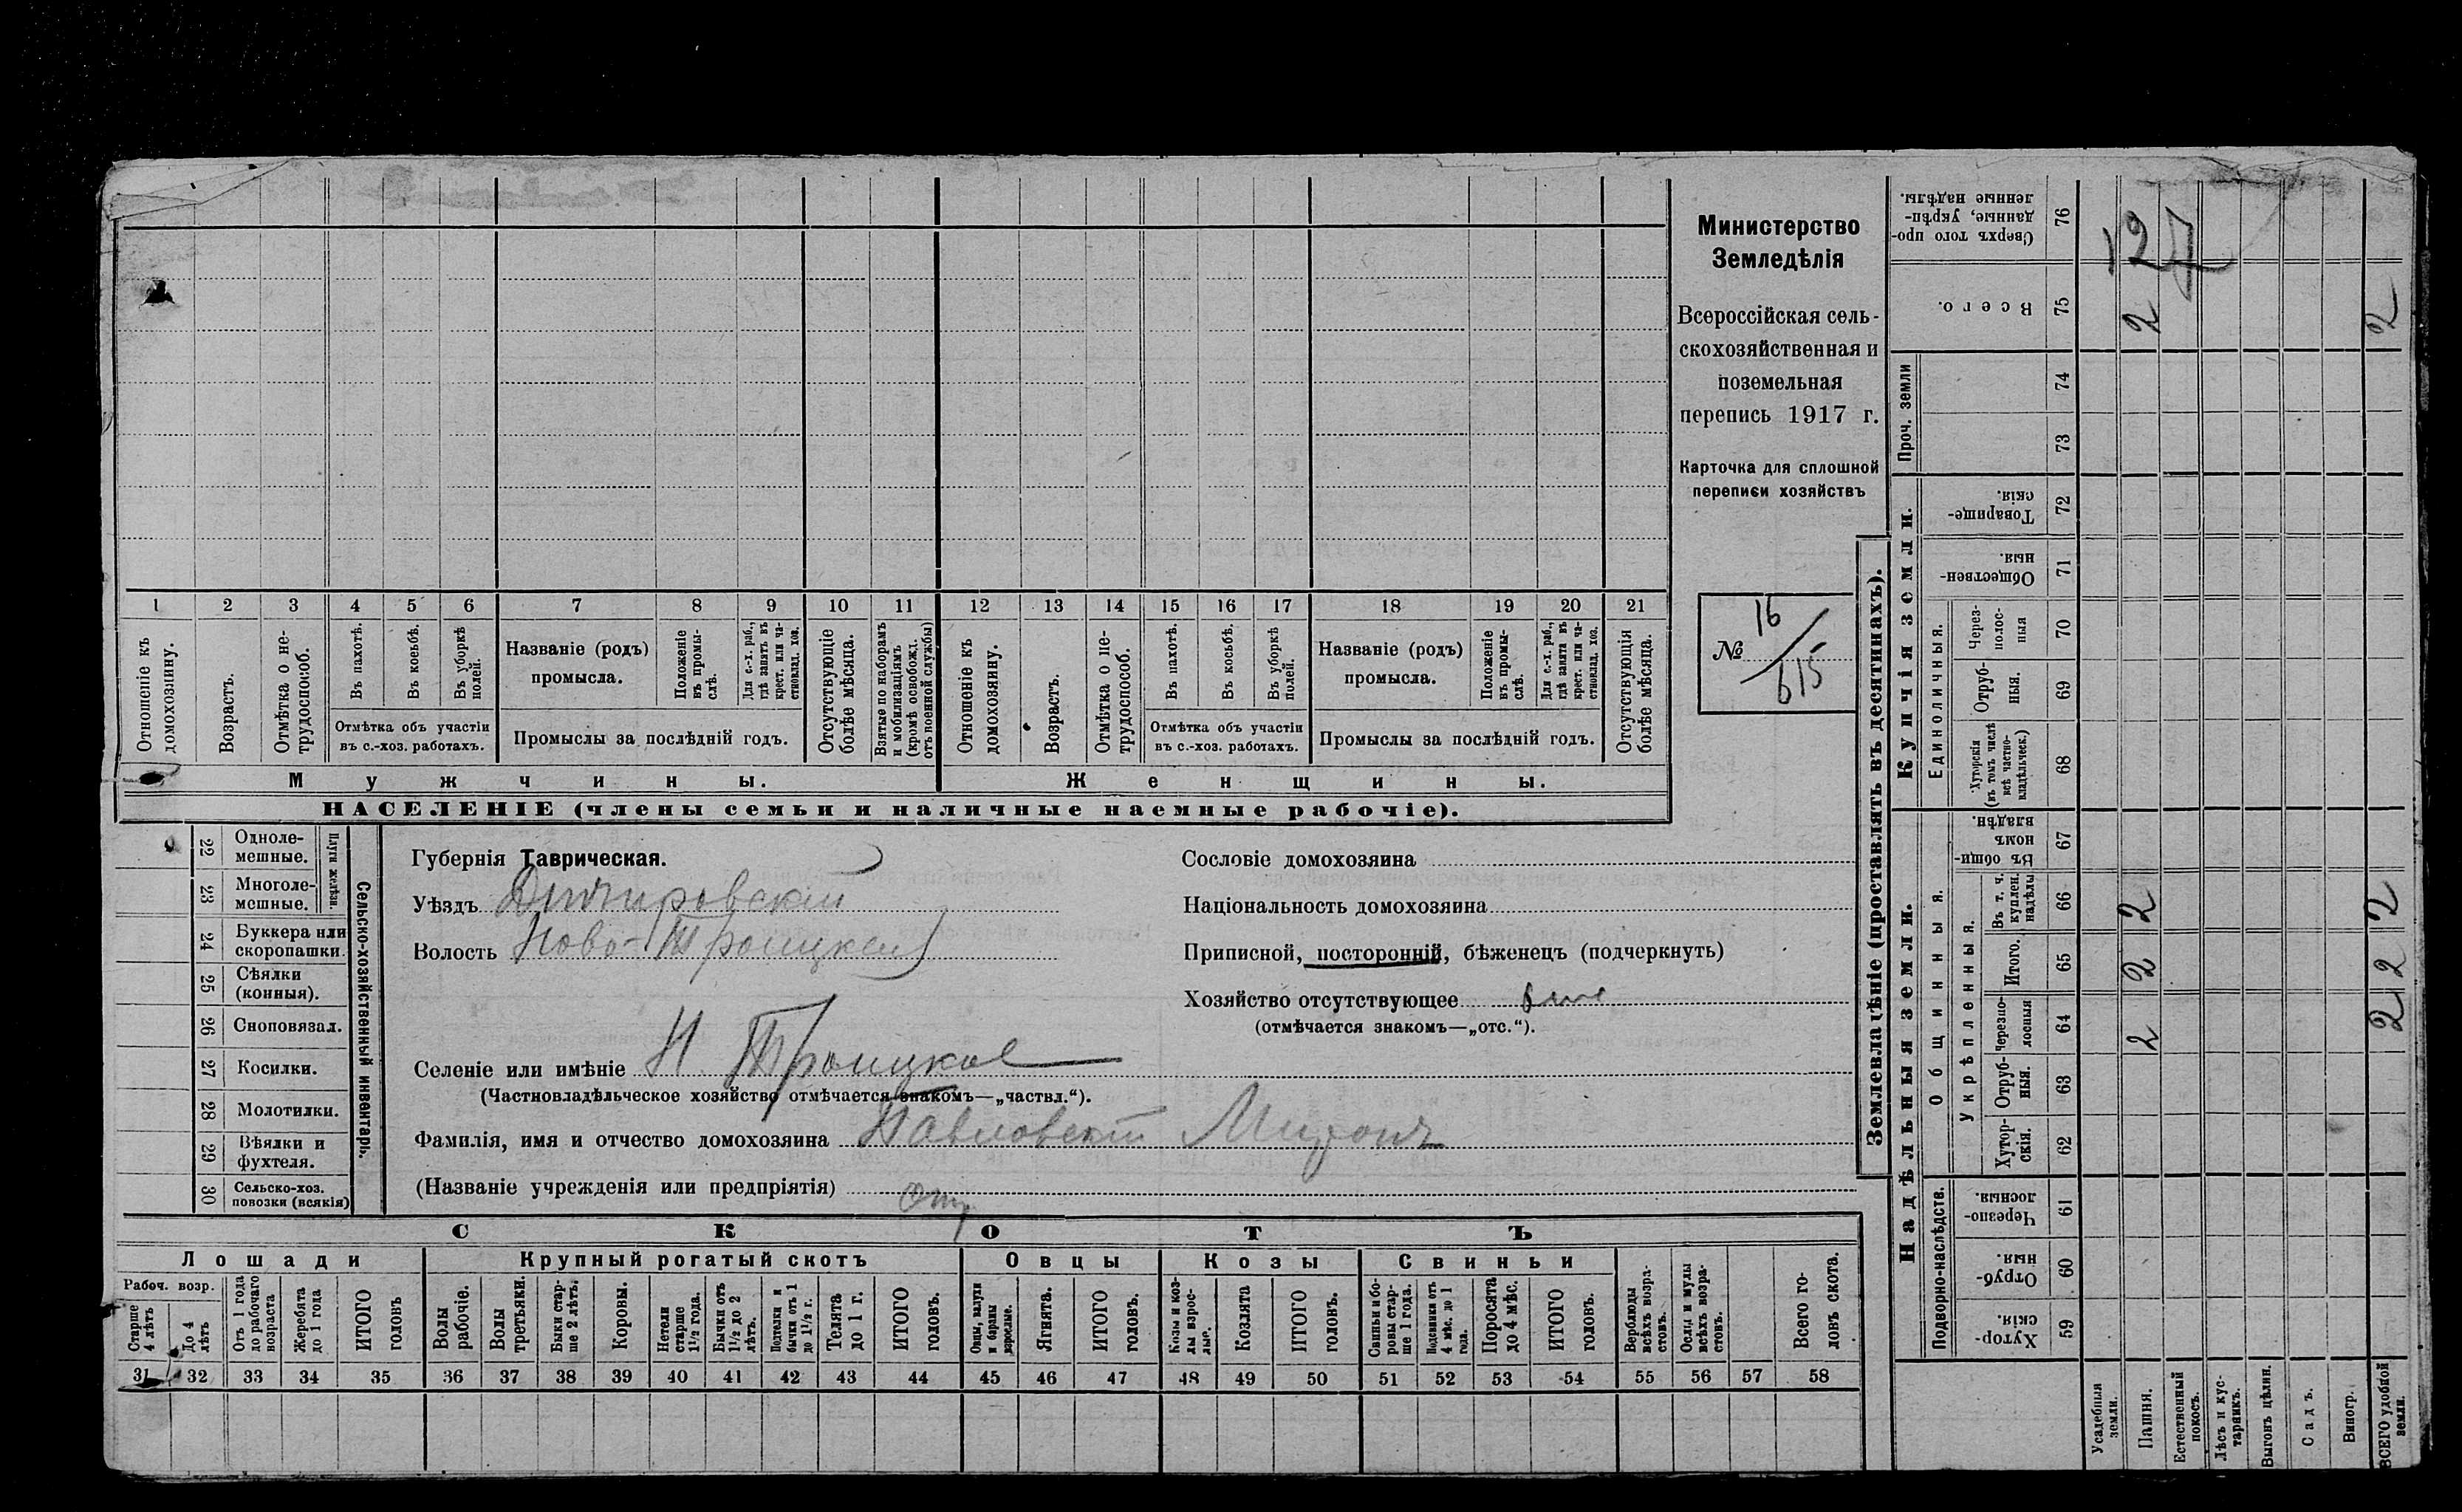 Министерство
Земледѣлія
Всероссійская сель-
скохозяйственная и
поземельная
перепись 1917 г.
Карточка для сплошной
переписи хозяйствъ
№ 16/615
1 2 3 4 5 6 7 8 9 10 11 12 13 14 15 16 17 18 19 20 21
Отношеніе къ домохозяину.
Возрастъ.
Отмѣтка о не-трудоспособ.
Въ пахотѣ.
Въ косьбѣ.
Въ уборкѣ полей.
Отмѣтка объ участіи
въ с.-хоз. работахъ.
Названіе (родъ)
промысла.
Положеніе въ промы-слѣ.
Для с.-х. раб., гдѣ занятъ въ крест. или ча-стновлад. хоз.
Промыслы за послѣдній годъ.
Отсутствующіе болѣе мѣсяца.
Взятые по наборамъ и мобилизаціямъ (кромѣ освобожд. отъ военной службы)
Отношеніе къ домохозяину.
Возрастъ.
Отмѣтка о не-трудоспособ.
Въ пахотѣ.
Въ косьбѣ.
Въ уборкѣ полей.
Отмѣтка объ участіи
въ с.-хоз. работахъ.
Названіе (родъ)
промысла.
Положеніе въ промы-слѣ.
Для с.-х. раб., гдѣ занята въ крест. или ча-стновлад. хоз.
Промыслы за послѣдній годъ.
Отсутствующія болѣе мѣсяца.
Мужчины.
Женщины.
НАСЕЛЕНІЕ (члены семьи и наличные наемные рабочіе).
22 Одноле-мешные.
23 Многоле-мешные.
Плуги желѣзн.
24 Буккера или скоропашки.
25 Сѣялки (конныя).
26 Сноповязал.
27 Косилки.
28 Молотилки.
29 Вѣялки и фухтеля.
30 Сельско-хоз. повозки (всякія)
Сельско-хозяйственный инвентарь.
Губернія Таврическая.
Уѣздъ Днѣпровскій
Волость Ново-Троицкая
Селеніе или имѣніе Н. Троицкое
(Частновладѣльческое хозяйство отмѣчается знакомъ—„частвл.“).
Фамилія, имя и отчество домохозяина Павловскій Миронъ
(Названіе учрежденія или предпріятія)
Сословіе домохозяина
Національность домохозяина
Приписной, посторонній, бѣженецъ (подчеркнуть)
Хозяйство отсутствующее
(отмѣчается знакомъ—„отс.“).
СКОТЪ
Лошади
Крупный рогатый скотъ
Овцы
Козы
Свиньи
Рабоч. возр.
Старше 4 лѣтъ
До 4 лѣтъ
Отъ 1 года до рабочаго возраста
Жеребята до 1 года
ИТОГО головъ
Волы рабочіе.
Волы третьяки.
Быки стар-ше 2 лѣтъ.
Коровы.
Нетели старше 1½ года.
Бычки отъ 1½ до 2 лѣтъ.
Подтелки и бычки отъ 1 до 1½ г.
Телята до 1 г.
ИТОГО головъ.
Овцы, валухи и бараны взрослые.
Ягнята.
ИТОГО головъ.
Козы и коз-лы взрос-лые.
Козлята
ИТОГО головъ.
Свиньи и бо-ровы стар-ше 1 года.
Подсвинки отъ 4 мѣс. до 1 года.
Поросята до 4 мѣс.
ИТОГО головъ.
Верблюды всѣхъ возра-стовъ.
Ослы и мулы всѣхъ возра-стовъ.
Всего го-ловъ скота.
31 32 33 34 35 36 37 38 39 40 41 42 43 44 45 46 47 48 49 50 51 52 53 54 55 56 57 58
Землевладѣніе (проставлять въ десятинахъ).
Надѣльныя земли.
Купчія земли.
Проч. земли
Подворно-наслѣдств.
Общинныя.
Укрѣпленныя.
Единоличныя.
Сверхъ того про-данные, укрѣп-ленные надѣлы. 76 12
Всего. 75 2 2
74
73
Товарище-скія. 72
Обществен-ныя 71
Через-полос-ныя 70
Отруб-ныя. 69
Хуторскія (въ томъ числѣ всѣ частно-владѣльческ.) 68
Въ общин-номъ владѣн. 67
Въ т. ч. куплен. надѣлы 66 2 2
Итого. 65 2 2
Черезпо-лосныя 64 2 2
Отруб-ныя. 63
Хутор-скія. 62
Черезпо-лосныя. 61
Отруб-ныя. 60
Хутор-скія 59
Усадебныя земли.
Пашня.
Естественный покосъ.
Лѣсъ и кус-тарникъ.
Выгонъ цѣлин.
Садъ.
Виногр.
ВСЕГО удобной земли.